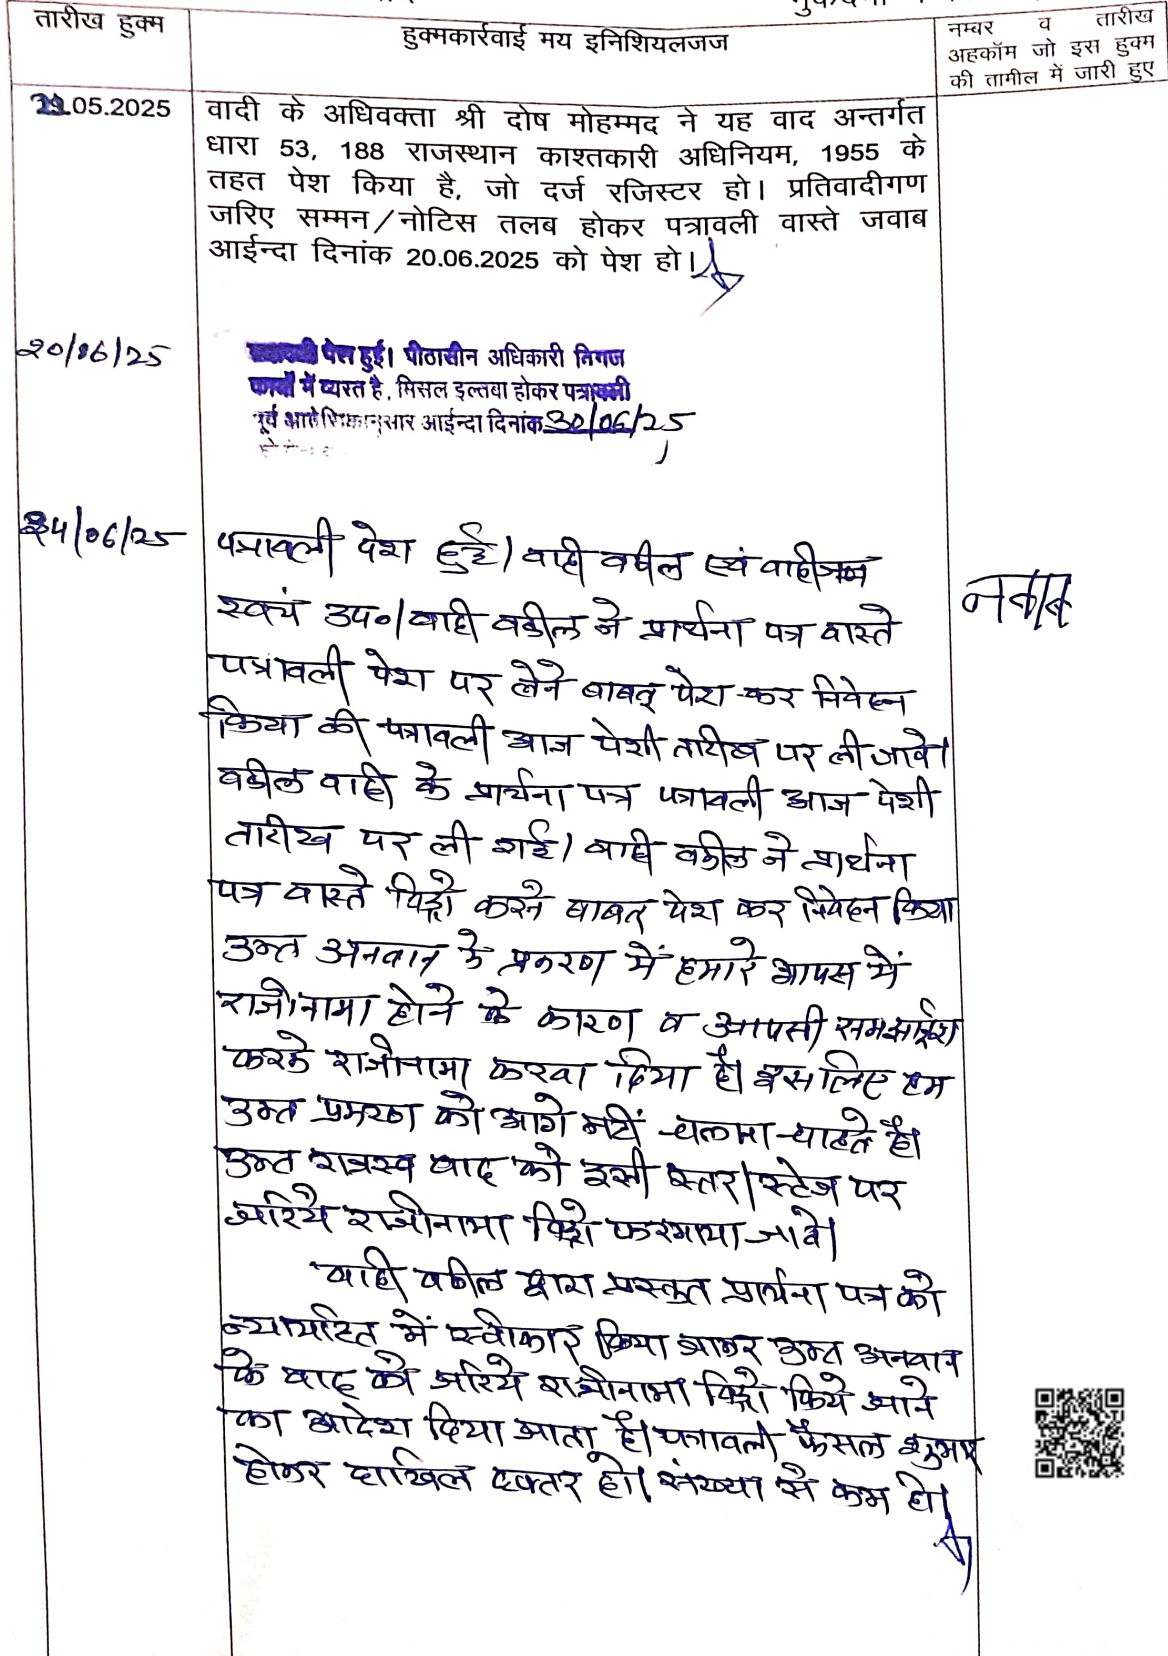 तारीख हुक्म
हुक्मकार्रवाई मय इनिशियलजज
नम्बर व तारीख
अहकॉम जो इस हुक्म
की तामील में जारी हुए
.05.2025
वादी के अधिवक्ता श्री दोष मोहम्मद ने यह वाद अन्तर्गत
धारा 53, 188 राजस्थान काश्तकारी अधिनियम, 1955 के
तहत पेश किया है, जो दर्ज रजिस्टर हो। प्रतिवादीगण
जरिए सम्मन/नोटिस तलब होकर पत्रावली वास्ते जवाब
आईन्दा दिनांक 20.06.2025 को पेश हो।
20/06/25
पेश हुई। पीठासीन अधिकारी
में व्यस्त है, मिसल इल्तबा होकर पत्रावली
पूर्व आईन्दा दिनांक 30/06/25
24/06/25
पत्रावली पेश हुई। वादी वकील एवं
स्वयं उप०। वादी वकील ने प्रार्थना पत्र वास्ते
पत्रावली पेश पर लेने बाबत् पेश कर निवेदन
किया की पत्रावली आज पेशी तारीख पर ली जावे।
वकील वादी के प्रार्थना पत्र पत्रावली आज पेशी
तारीख पर ली गई। वादी वकील ने प्रार्थना
पत्र वास्ते विड्रो करने बाबत् पेश कर निवेदन किया
उक्त अनवान के प्रकरण में हमारे आपस में
राजीनामा होने के कारण व आपसी समझाईश
करके राजीनामा करवा दिया है। इसलिए हम
उक्त प्रकरण को आगे नहीं चलाना चाहते है।
उक्त राजस्व वाद को इसी स्तर/स्टेज पर
जरिये राजीनामा विड्रो फरमाया जावे।
वादी वकील द्वारा प्रस्तुत प्रार्थना पत्र को
न्यायहित में स्वीकार किया जाकर उक्त अनवान
के वाद को जरिये राजीनामा विड्रो किये जाने
का आदेश दिया जाता है। पत्रावली फैसल शुमार
होकर दाखिल दफ्तर हो। संख्या से कम हो।